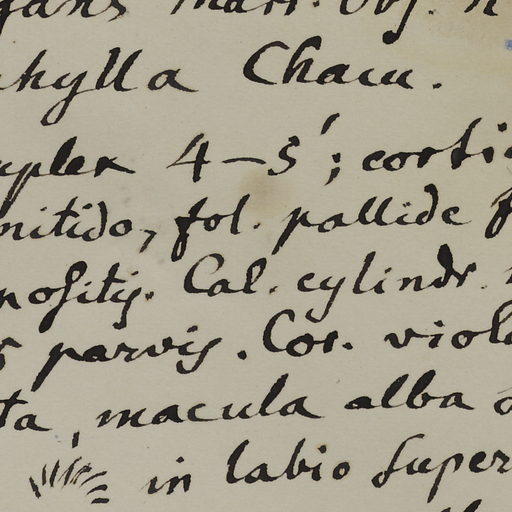 gans Mart. Obj. n
hylla Cham.
mplex 4–5'; corti
nitido, fol. pallide f
nositis. Cal. cylindr.
s parvis. Cor. viola
ta, macula alba
in labio super